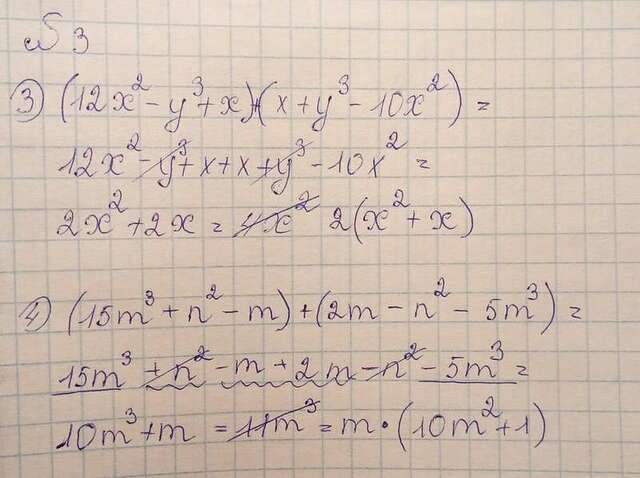 № 3
3) (12x² - y³ + x) + (x + y³ - 10x²) =
12x² - y³ + x + x + y³ - 10x² =
2x² + 2x = 4x² 2(x² + x)
4) (15m³ + n² - m) + (2m - n² - 5m³) =
15m³ + n² - m + 2m - n² - 5m³ =
10m³ + m = 11m³ = m · (10m² + 1)